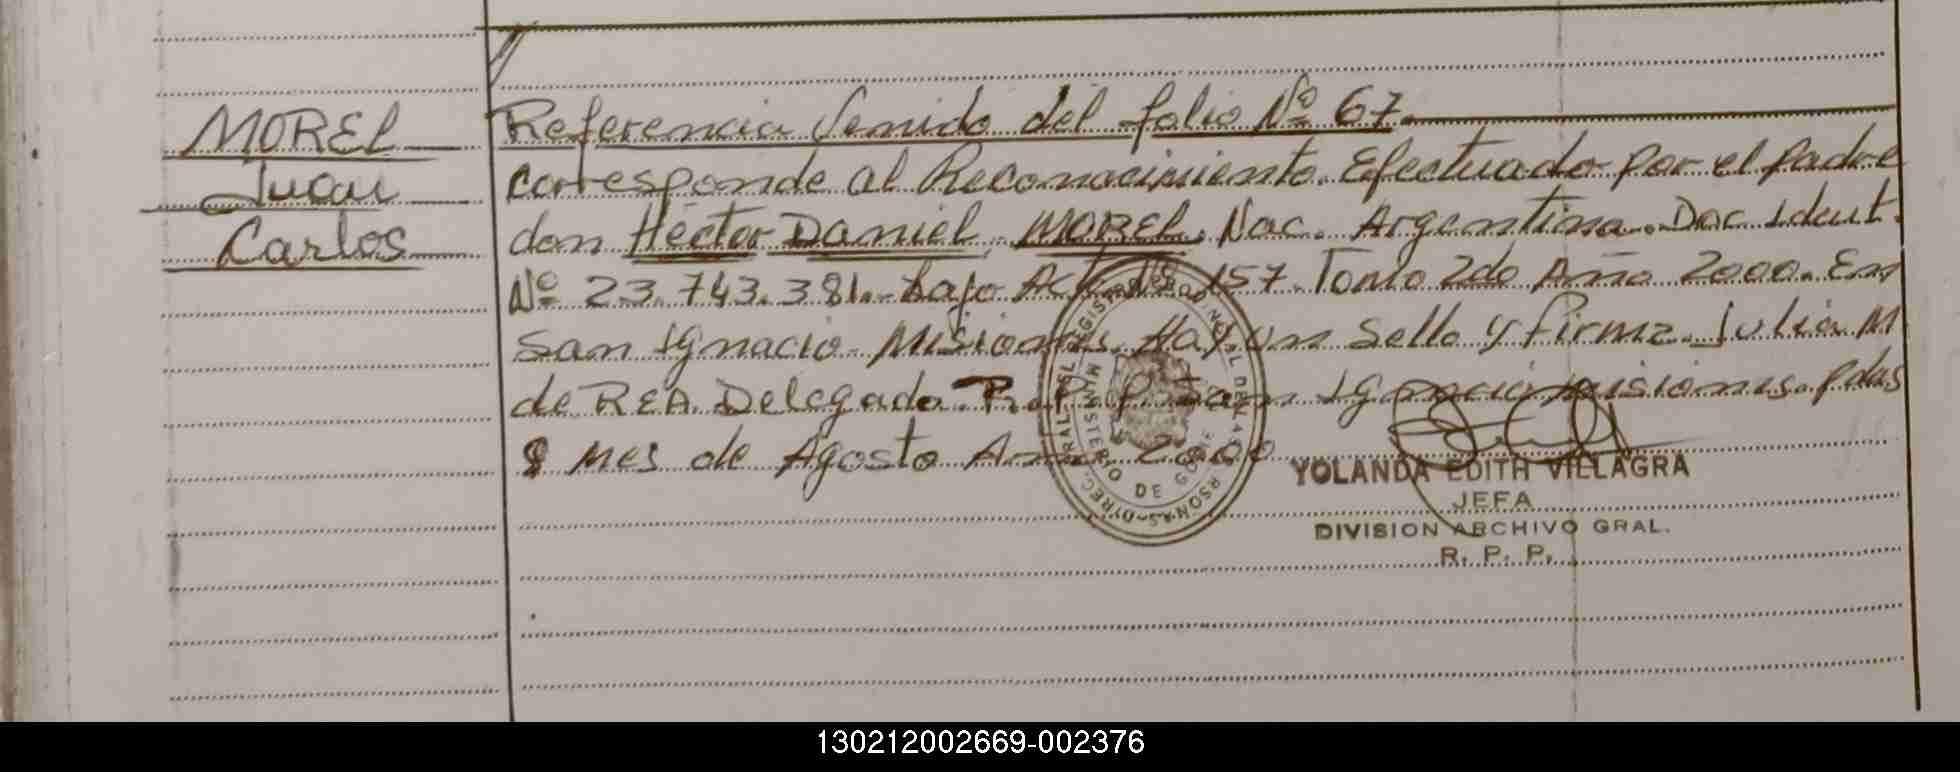 MOREL
Juan
Carlos
Referencia Venido del folio Nº 67.
corresponde al Reconocimiento Efectuado por el padre
don Héctor Daniel MOREL. Nac. Argentina. Doc. Ident.
Nº 23.743.381. bajo Acta Nº 157. Tomo 2do Año 2000. En
San Ignacio Misiones. Hay un sello y firma. Julia M
de REA. Delegada R. P. P. San Ignacio misiones. Pdas
8 Mes de Agosto Año 2000
YOLANDA EDITH VILLAGRA
JEFA
DIVISION ARCHIVO GRAL.
R. P. P.
MINISTERIO DE GOB
130212002669-002376